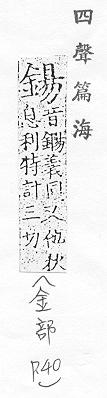 四聲篇海
音錫義同又他狄
息利特計三切
(金部
P40)